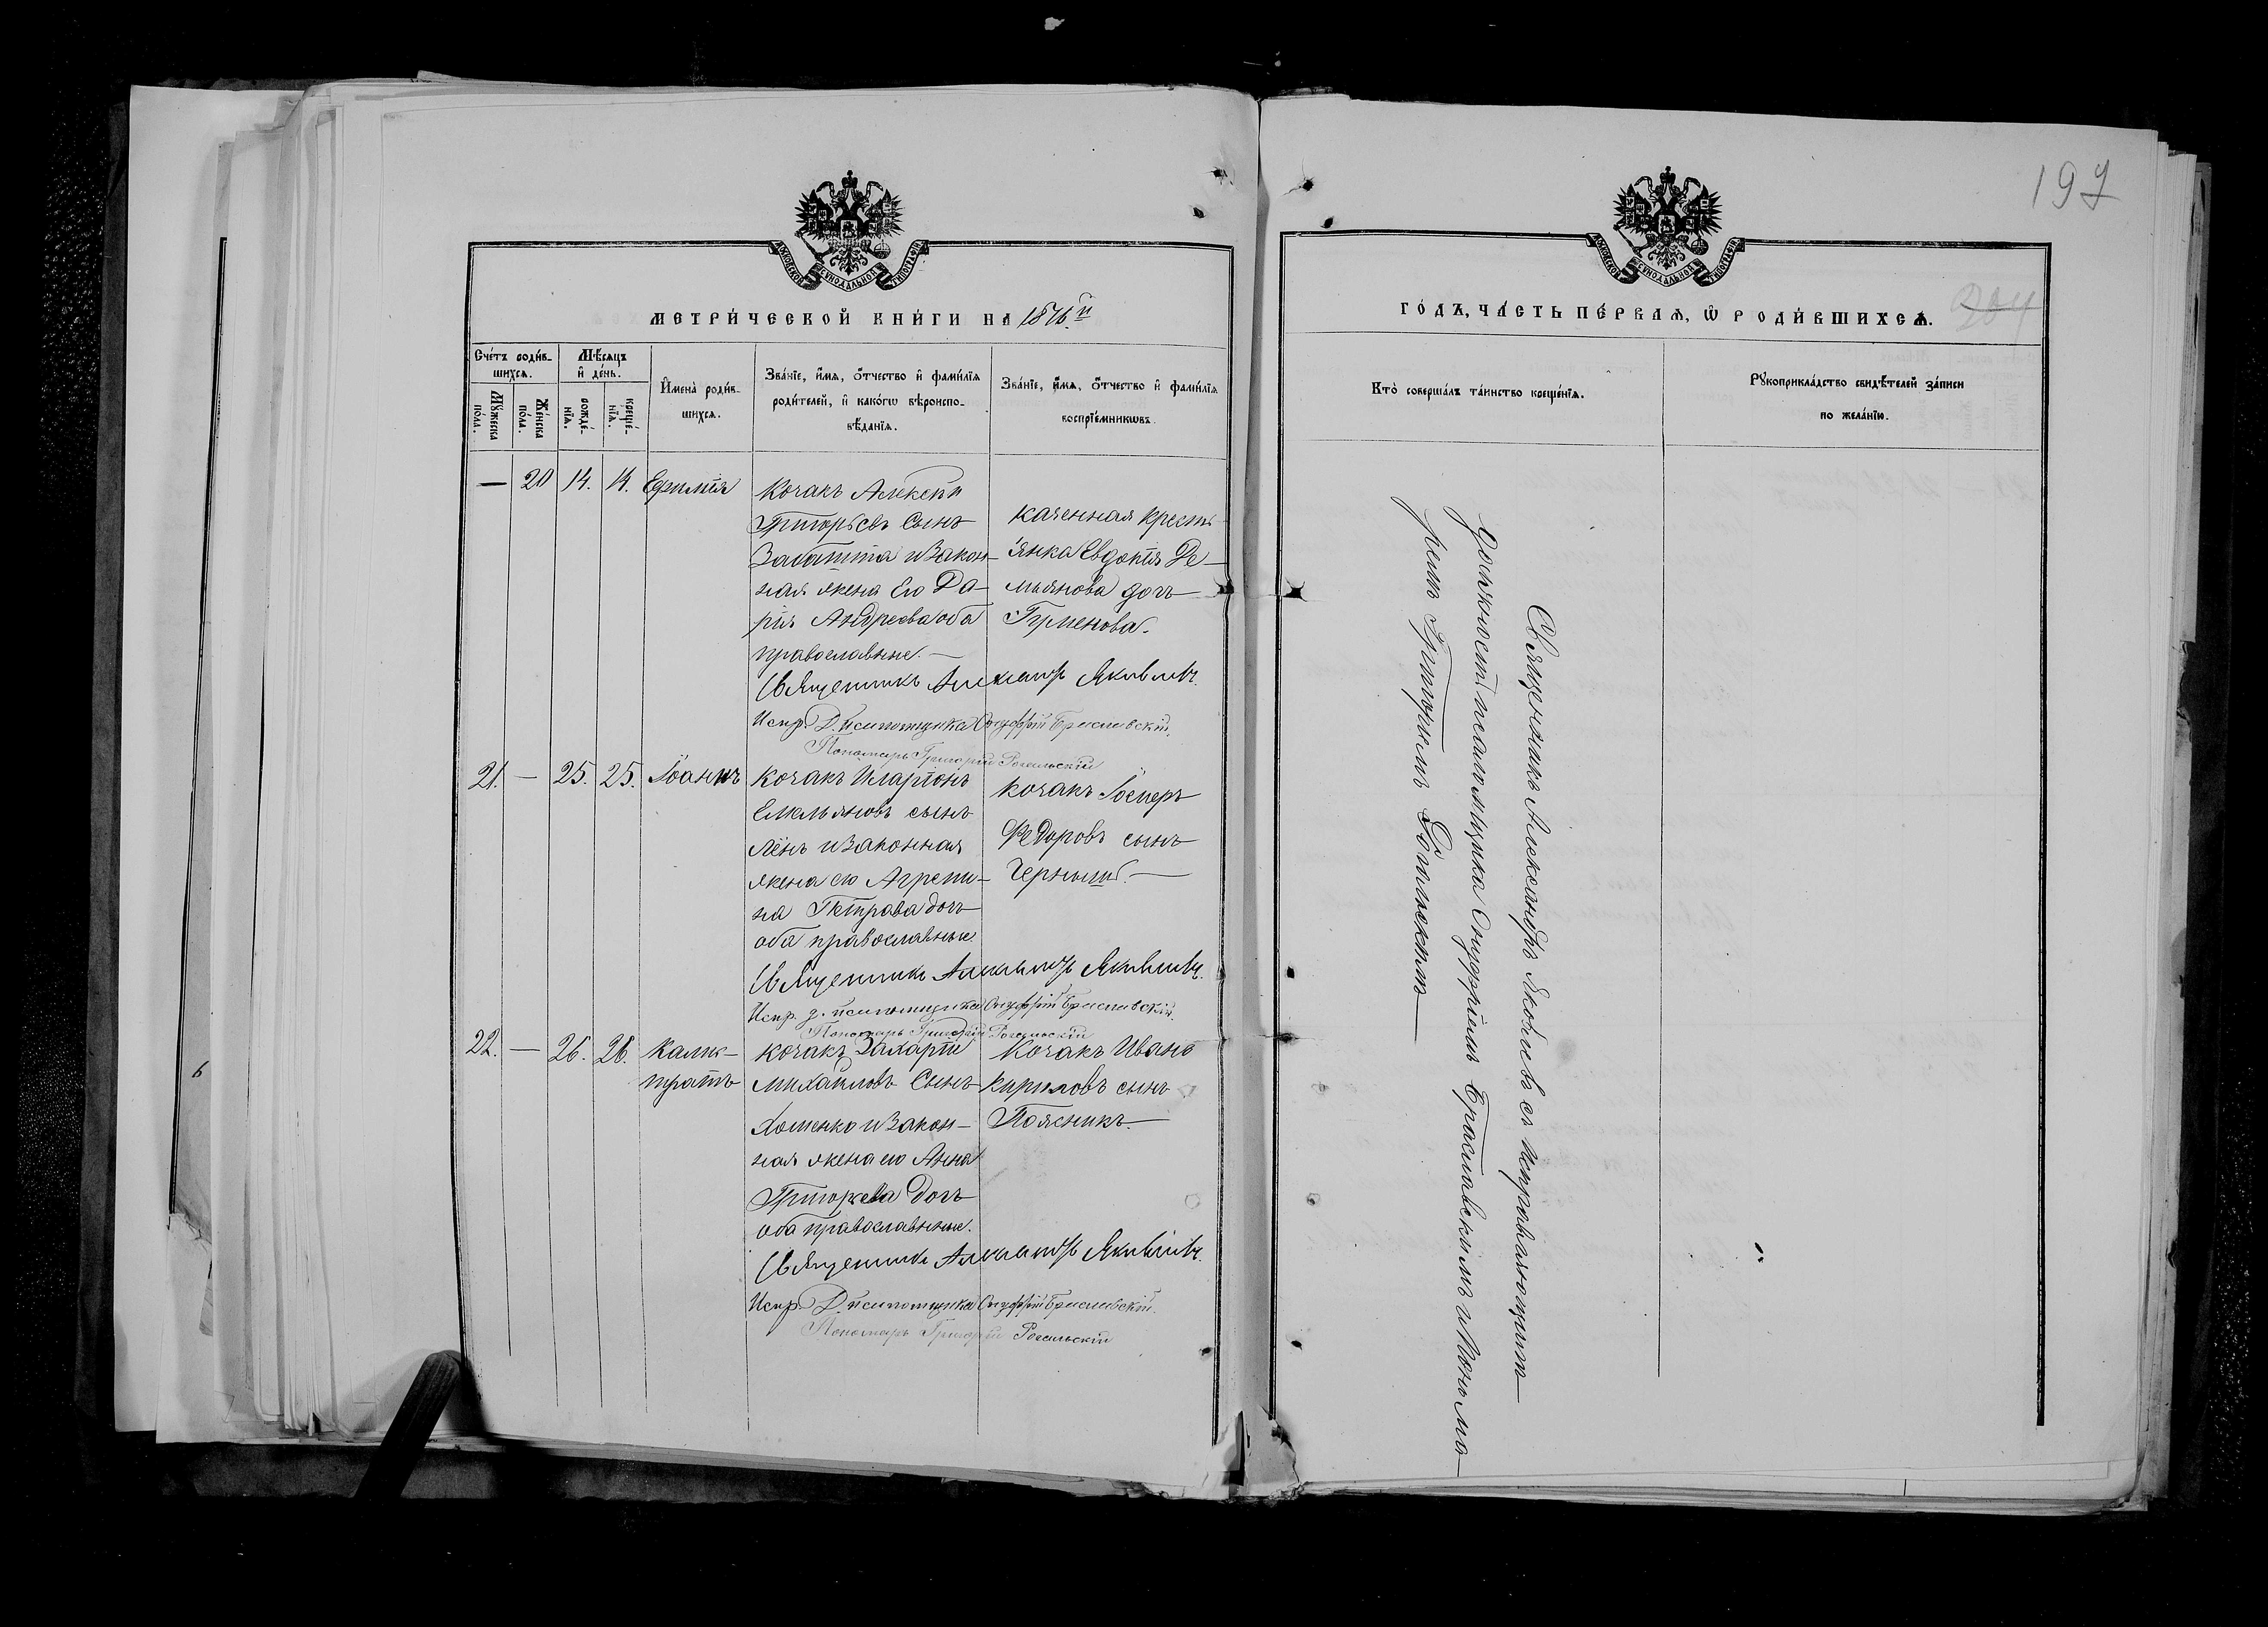 197
204
МОСКОВСКОЙ СѴНОДАЛЬНОЙ ТИПОГРАФІИ
МЕТРИ́ЧЕСКОЙ КНИ́ГИ НА 1876.й
Сче́тъ роди́в-
шихсѧ.
Мѣ́сѧцъ
и҆ де́нь.
Мꙋ́жеска
по́ла.
Же́нска
по́ла.
рожде́-
нїѧ.
креще́-
нїѧ.
И҆мена̀ роди́в-
шихсѧ.
Зва́нїе, и҆́мѧ, ѻ҆́тчество и҆ фами́лїѧ
роди́телей, и҆ како́гѡ вѣроиспо-
вѣ́данїѧ.
Зва́нїе, и҆́мѧ, ѻ҆́тчество и҆ фами́лїѧ
воспрїе́мникѡвъ.
— 20 14. 14. Ефимія
Кочакъ Алексѣй
Григорьевъ Сынъ
и Закон-
ная жена Его Да-
рія Андреева оба
православные. —
Казенная Кресть-
янка Евдокія Де-
мьянова дочь
Священникъ Александръ Яковлевъ.
Испр. Д. псаломщика Онуфрій Браславскій.
Пономарь Григорій
21. — 25. 25. Іоаннъ
Кочакъ Иларіонъ
Емельяновъ сынъ
Лѣнъ и Законная
жена его Агрепи-
на Петрова дочь
оба православные.
Кочакъ Іосифъ
Федоровъ сынъ
Чернышъ. —
Священникъ Александръ Яковлевъ.
Испр. д. псаломщика Онуфрій Браславскій.
Пономарь Григорій
22. — 26. 26. Калис-
тратъ
Кочакъ Захарій
Михайловъ Сынъ
Хоменко и Закон-
ная жена его Анна
Григорьева дочь
оба православные.
Кочакъ Иванъ
Кириловъ сынъ
Поясникъ. —
Священникъ Александръ Яковлевъ.
Испр. Д. псаломщика Онуфрій Браславскій.
Пономарь Григорій
МОСКОВСКОЙ СѴНОДАЛЬНОЙ ТИПОГРАФІИ
ГО́ДЪ, ЧА́СТЬ ПЕ́РВАѦ, Ѡ҆ РОДИ́ВШИХСѦ.
Кто̀ соверша́лъ та́инство креще́нїѧ.
Рꙋкоприкла́дство свидѣ́телей за́писи
по жела́нїю.
Священникъ Александръ Яковлевъ съ исправляющимъ
должность псаломщика Онуфріемъ Браславскимъ и Понома-
ремъ Григоріемъ